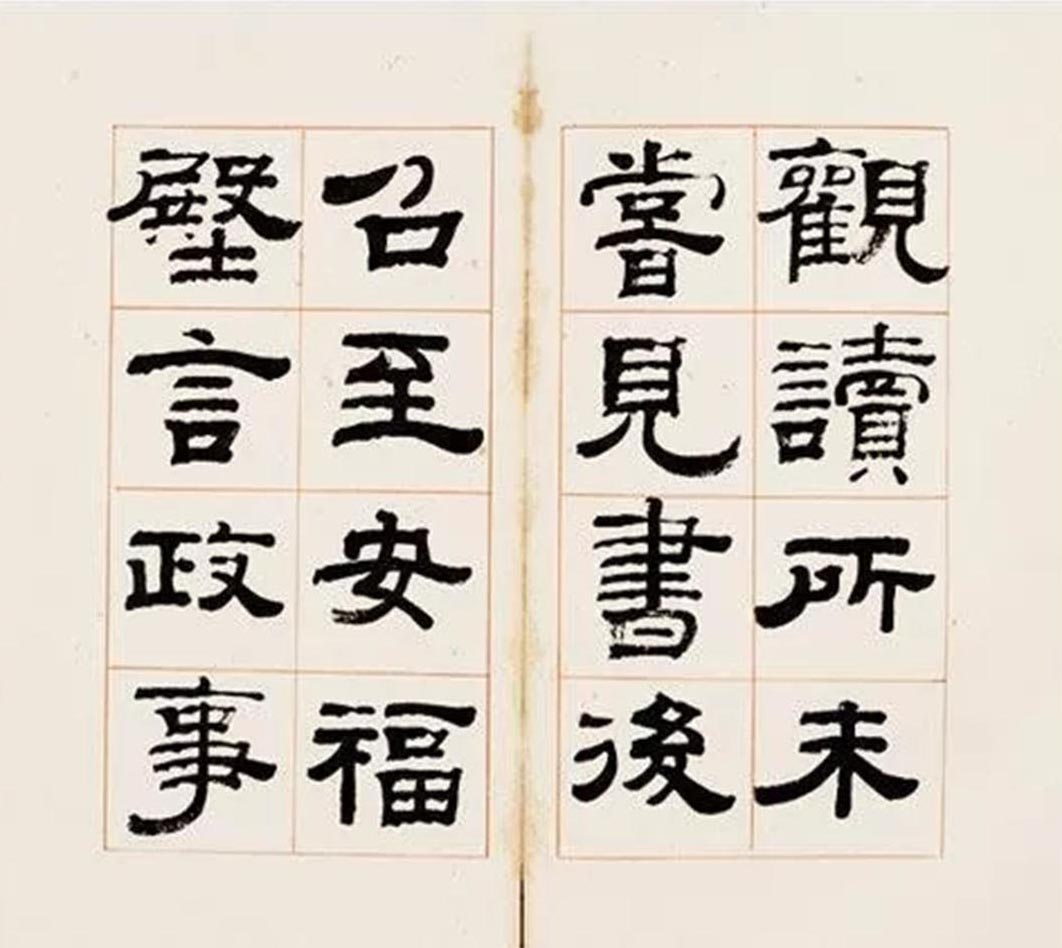 觀讀所未
嘗見書後
召至安福
壂言政事